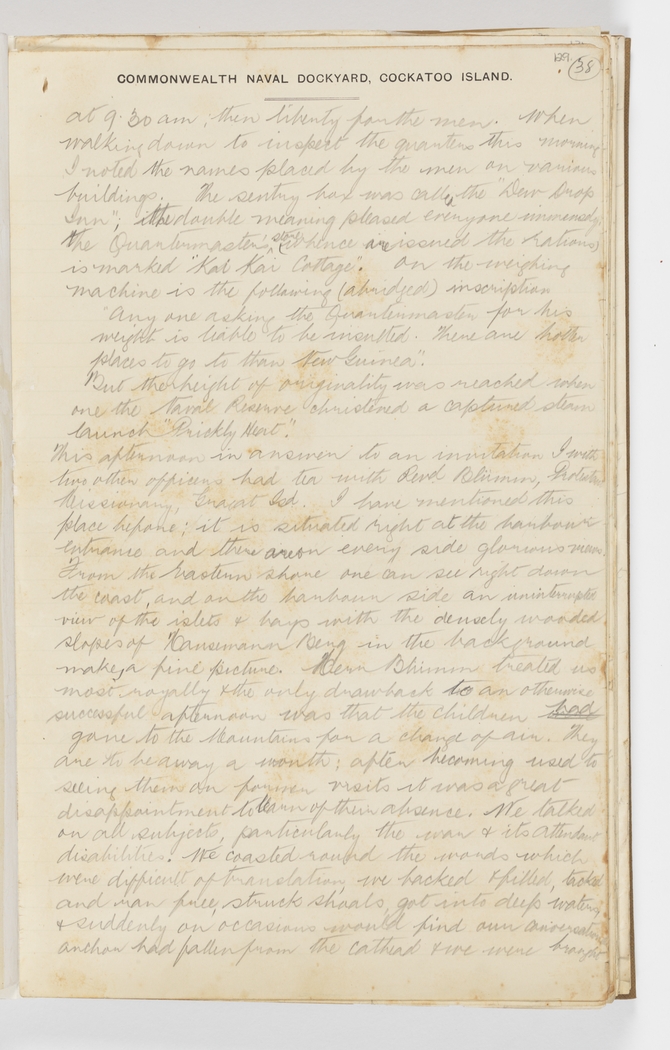 129.
38
COMMONWEALTH NAVAL DOCKYARD, COCKATOO ISLAND.
at 9.30 am; then liberty for the men. When
walking down to inspect the quarters this morning
I noted the names placed by the men on various
buildings. The sentry box was called the "Dew Drop
Inn"; the double meaning pleased everyone immensely
the Quartermaster's store (whence are issued the rations)
is marked "Kai Kai Cottage". On the weighing
machine is the following (abridged) inscription
"Any one asking the Quartermaster for his
weight is liable to be insulted. There are hotter
places to go to than New Guinea".
But the height of originality was reached when
one the Naval Reserve christened a captured steam
launch "Prickly Heat".
This afternoon in answer to an invitation I with
two other officers had tea with Revd Blümm, Protestn
Missionary, Graget Isd. I have mentioned this
place before; it is situated right at the harbour
entrance and there are on every side glorious views.
From the Eastern shore one can see right down
the coast, and on the harbour side an uninterrupted
view of the islets & bays with the densely wooded
slopes of Hansemann Berg in the background
make a fine picture. Herr Blümm treated us
most royally & the only drawback to an otherwise
successful afternoon was that the children had
gone to the Mountains for a change of air. They
are to be away a month; after becoming used to
seeing them on former visits it was a great
disappointment to learn of their absence. We talked
on all subjects, particularly the war & its attendant
disabilities. We coasted round the words which
were difficult of translation, we backed & filled, tacked
and ran free, struck shoals, got into deep waters,
& suddenly on occasions would find our conversation
anchor had fallen from the cathead & we were brought